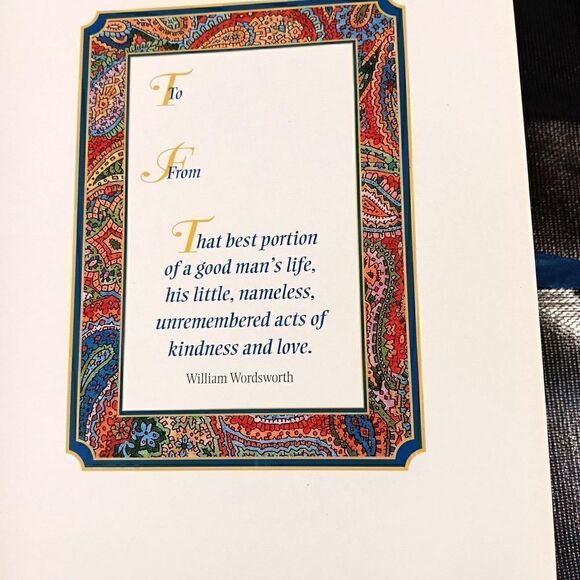 To
From
That best portion
of a good man's life,
his little, nameless,
unremembered acts of
kindness and love.
William Wordsworth